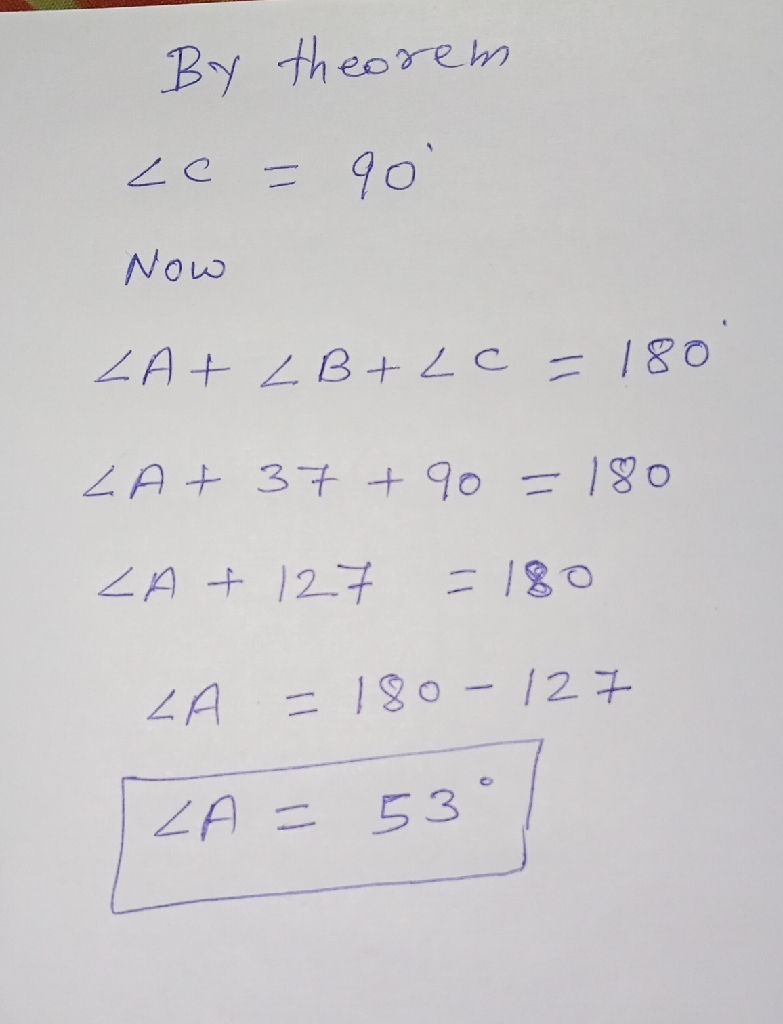 By theorem
∠C = 90°
Now
∠A + ∠B + ∠C = 180°
∠A + 37 + 90 = 180
∠A + 127 = 180
∠A = 180 - 127
∠A = 53°